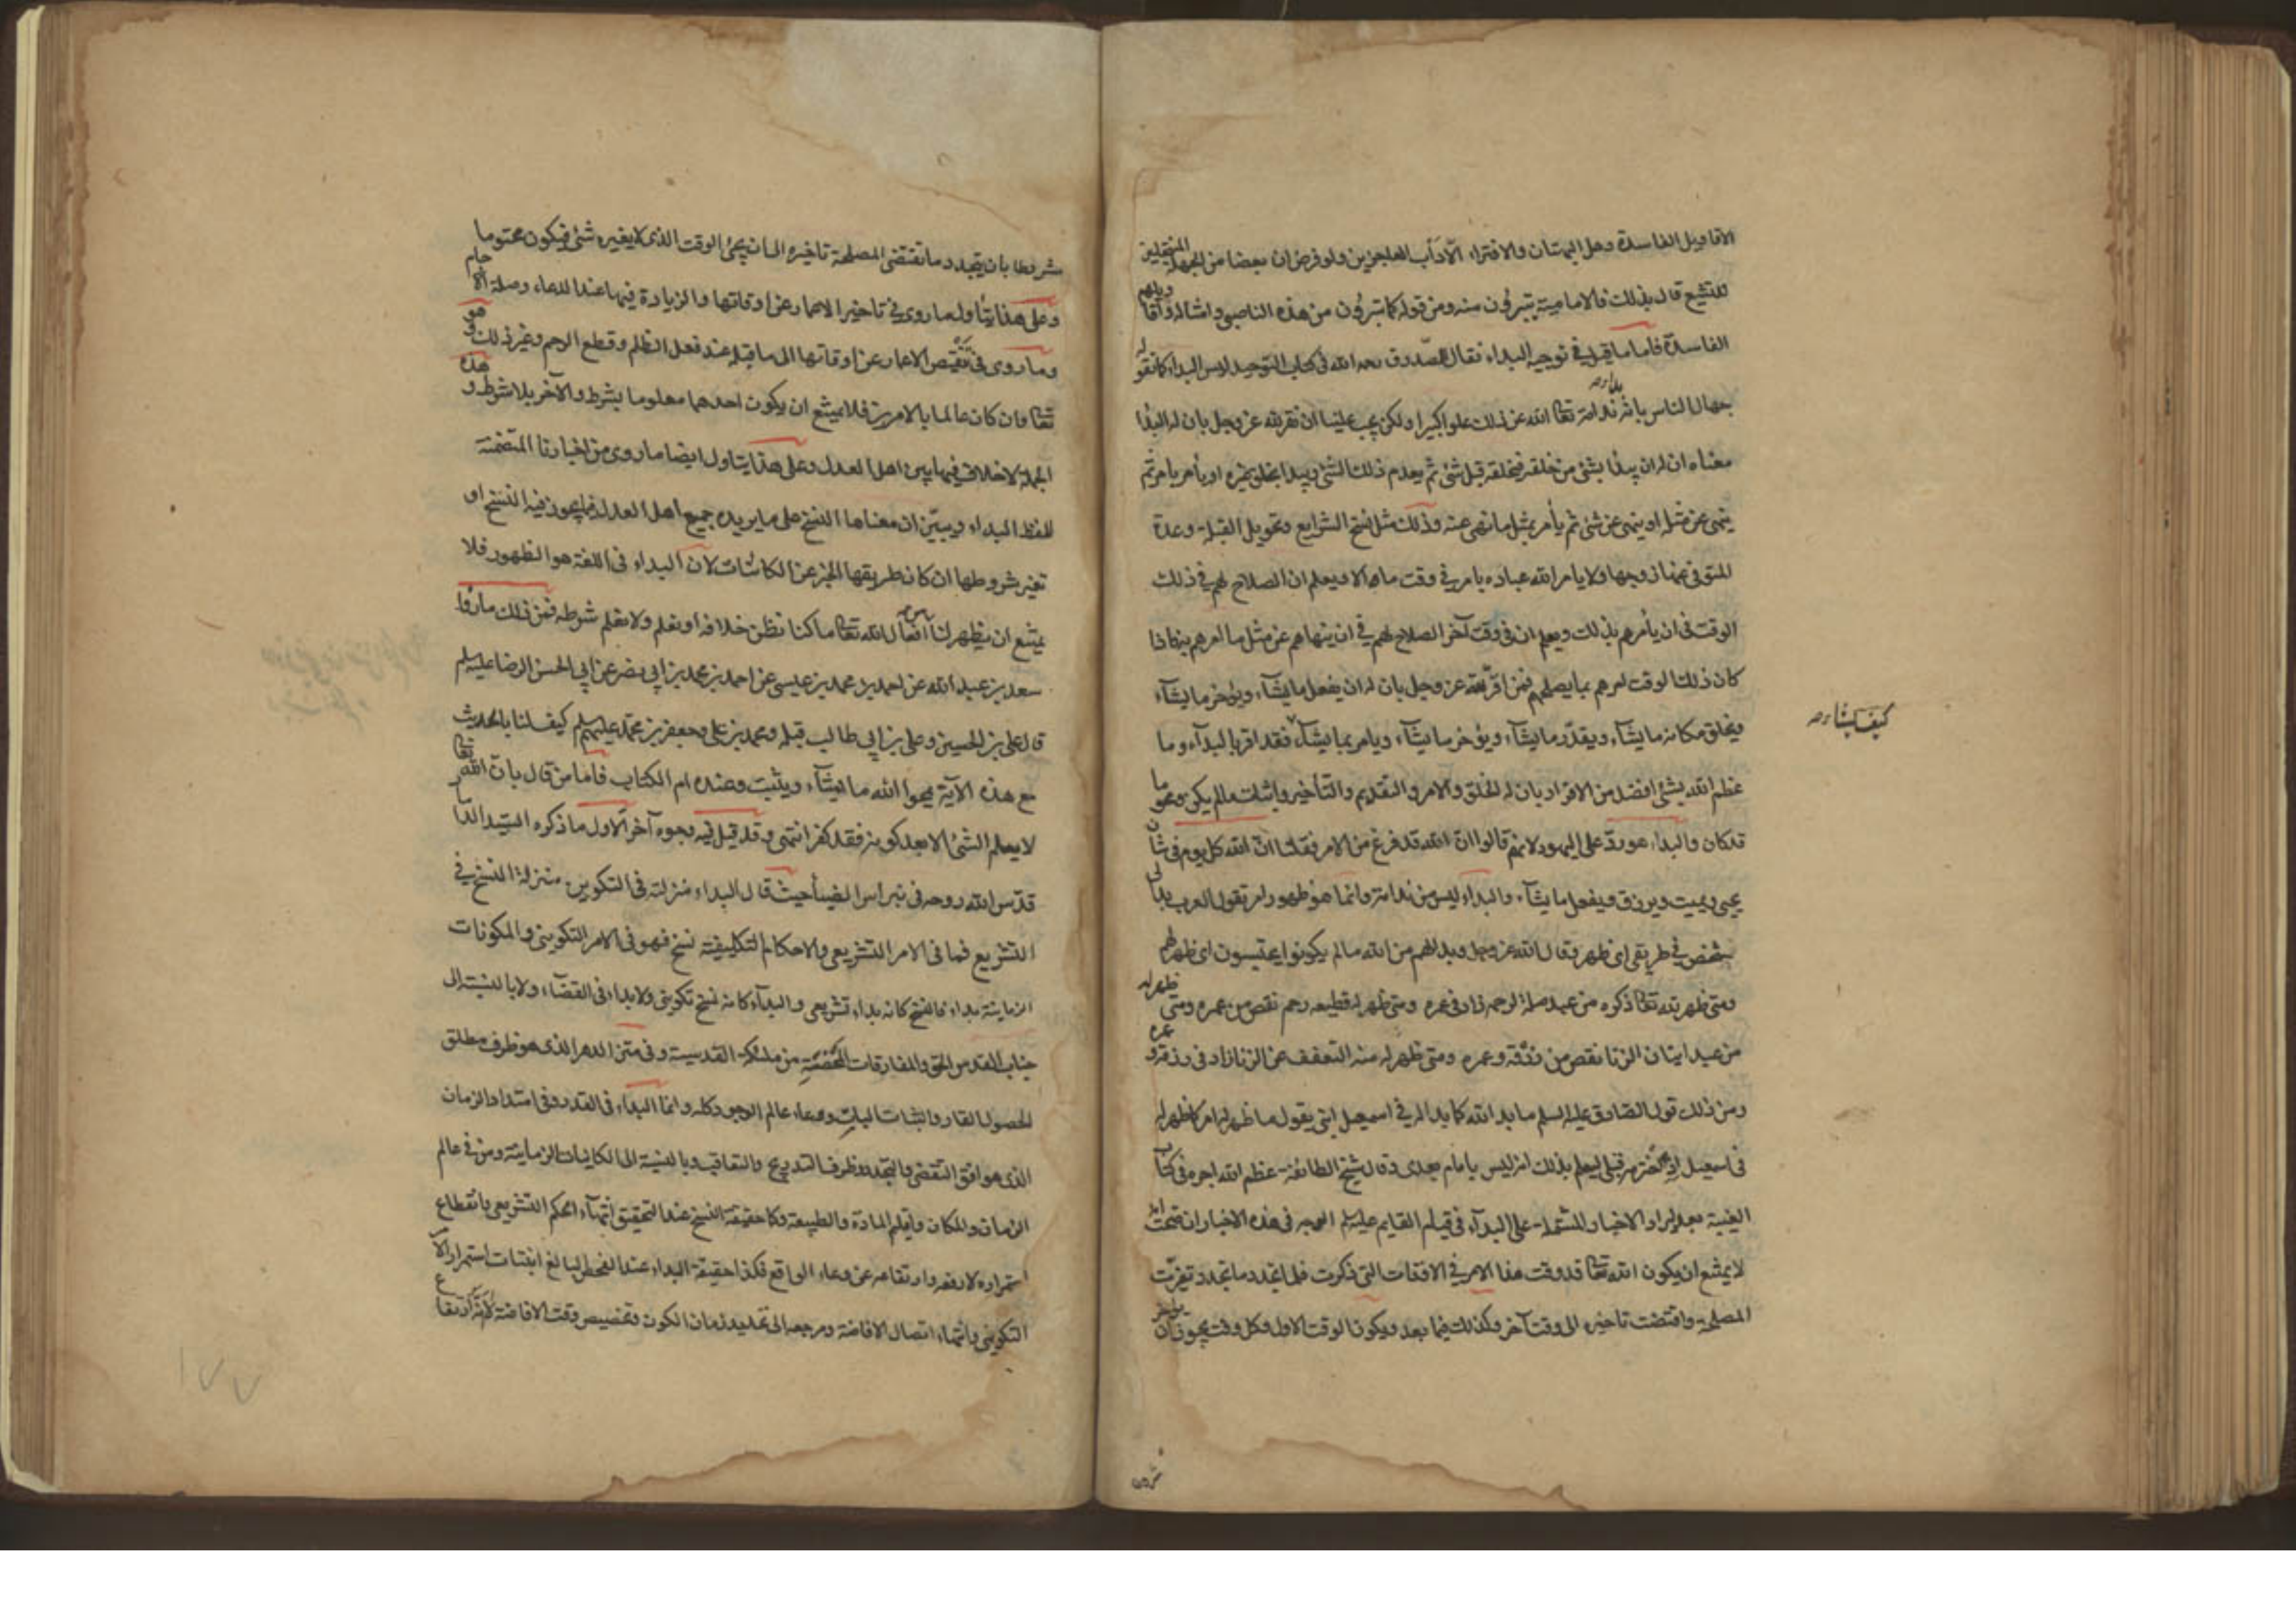 الاقاويل الفاسدة وهل البهتان والافتراء الا دأب العاجزين ولو فرض ان بعضا من الجهلة المنتحلين
للتشيع قال بذلك فالامامية يتبرؤن منه ومن قوله كما يتبرؤن من هذه الناصبي وامثاله واقاويلهم
الفاسدة فاما ما قيل في توجيه البداء فقال الصدوق رحمه الله في كتاب التوحيد ليس البداء كما تقوله
جهال الناس بانه بداء ندامة تعالى الله عن ذلك علوا كبيرا ولكن يجب علينا ان نقر لله عز وجل بان له البداء
معناه ان له ان يبدأ بشئ من خلقه فيخلقه قبل شئ ثم يعدم ذلك الشئ ويبدأ بخلق غيره او يأمر بامر ثم
ينهى عن مثله او ينهى عن شئ ثم يأمر بمثل ما نهى عنه وذلك مثل نسخ الشرايع وتحويل القبلة وعدة
المتوفى عنها زوجها ولا يأمر الله عباده بامر في وقت ما الا ويعلم ان الصلاح لهم في ذلك
الوقت في ان يأمرهم بذلك ويعلم ان في وقت آخر الصلاح لهم في ان ينهاهم عن مثل ما امرهم به فاذا
كان ذلك الوقت امرهم بما يصلحهم فمن اقر لله عز وجل بان له ان يفعل ما يشآء ويؤخر ما يشآء
ويخلق مكانه ما يشآء ويقدم ما يشآء ويؤخر ما يشآء ويأمر بما يشآء فقد اقر بالبدآء وما
كيف يشاء
عظم الله بشئ افضل من الاقرار بان له الخلق والامر والتقديم والتأخير واثبات ما لم يكن ومحو ما
قد كان والبداء هو رد على اليهود لانهم قالوا ان الله قد فرغ من الامر فقلنا ان الله كل يوم في شأن
يحيى ويميت ويرزق ويفعل ما يشآء والبداء ليس من ندامة وانما هو ظهور امر تقول العرب بدا لي
شخص في طريقي اى ظهر وقال الله عز وجل وبدا لهم من الله ما لم يكونوا يحتسبون اى ظهر لهم
ومتى ظهر لله تعالى ذكره من عبد صلة لرحمه زاد في عمره ومتى ظهر له قطيعة رحم نقص من عمره ومتى ظهر له
من عبد اتيان الزنا نقص من رزقه وعمره ومتى ظهر له منه التعفف عن الزنا زاد في رزقه وعمره
ومن ذلك قول الصادق عليه السلم ما بدا لله كما بدا له في اسمعيل ابني يقول ما ظهر له امر كما ظهر له
في اسمعيل اذ اخترمه قبلي ليعلم بذلك انه ليس بامام بعدى وقال شيخ الطائفة عظم الله اجره في كتاب
الغيبة بعد ايراد الاخبار المشتملة على البدآء في قيام القايم عليه السلم الوجه في هذه الاخبار ان صحت انه
لا يمتنع ان يكون الله تعالى قد وقت هذا الامر في الاوقات التي ذكرت فلما تجدد ما تجدد تغيرت
المصلحة واقتضت تاخيره الى وقت آخر وكذلك فيما بعد ويكون الوقت الاول وكل وقت يجوز ان يؤخر
مشروطا بان يتجدد ما تقتضى المصلحة تاخيره الى ان يجئ الوقت الذى لا يغيره شئ فيكون محتوما
وعلى هذا يتأول ما روى في تاخير الاعمار عن اوقاتها والزيادة فيها عند الدعاء وصلة الارحام
وما روى في تنقيص الاعمار عن اوقاتها الى ما قبله عند فعل الظلم وقطع الرحم وغير ذلك وهو
تعالى وان كان عالما بالامرين فلا يمتنع ان يكون احدهما معلوما بشرط والآخر بلا شرط وهذه
الجملة لا خلاف فيها بين اهل العدل وعلى هذا يتاول ايضا ما روى من اخبارنا المتضمنة
للفظ البداء ويبيّن ان معناها النسخ على ما يريده جميع اهل العدل فيما يجوز فيه النسخ او
تغير شروطها ان كان طريقها الخبر عن الكائنات لان البداء في اللغة هو الظهور فلا
يمتنع ان يظهر لنا من افعال الله تعالى ما كنا نظن خلافه او نعلم ولا نعلم شرطه فمن ذلك ما رواه
سعد بن عبد الله عن احمد بن محمد بن عيسى عن احمد بن محمد بن ابي نصر عن ابي الحسن الرضا عليه السلم
قال على بن الحسين وعلى بن ابي طالب قبله ومحمد بن على وجعفر بن محمد عليهم السلم كيف لنا بالحديث
مع هذه الآية يمحوا الله ما يشآء ويثبت وعنده ام الكتاب فاما من قال بان الله تعالى
لا يعلم الشئ الا بعد كونه فقد كفر انتهى وقد قيل فيه وجوه آخر الاول ما ذكره السيد الداماد
قدّس الله روحه في نبراس الضيا حيث قال البداء منزلته في التكوين منزلة النسخ في
التشريع فما في الامر التشريعى والاحكام التكليفية نسخ فهو في الامر التكوينى والمكونات
الزمانية بداء فالنسخ كانه بداء تشريعى والبدآء كانه نسخ تكوينى ولا بداء في القضآء ولا بالنسبة الى
جناب القدس الحق والمفارقات المحضة من ملائكته القدسية وفي متن الدهر الذى هو ظرف مطلق
الحصول القار والثبات البات ووعاء عالم الوجود كله وانما البداء في القدر وفي امتداد الزمان
الذى هو افق التقضى والتجدد وظرف التدريج والتعاقب وبالنسبة الى الكاينات الزمانية ومن في عالم
الزمان والمكان واقليم المادة والطبيعة وكما حقيقة النسخ عند التحقيق انتهآء الحكم التشريعى وانقطاع
استمراره لا رفعه وارتفاعه عن وعاء الواقع فكذا حقيقة البداء عند الفحص البالغ انبتات استمرار الامر
التكوينى وانتهاء اتصال الافاضة ومرجعه الى تحديد زمان الكون وتخصيص وقت الافاضة لا انه ارتفاع